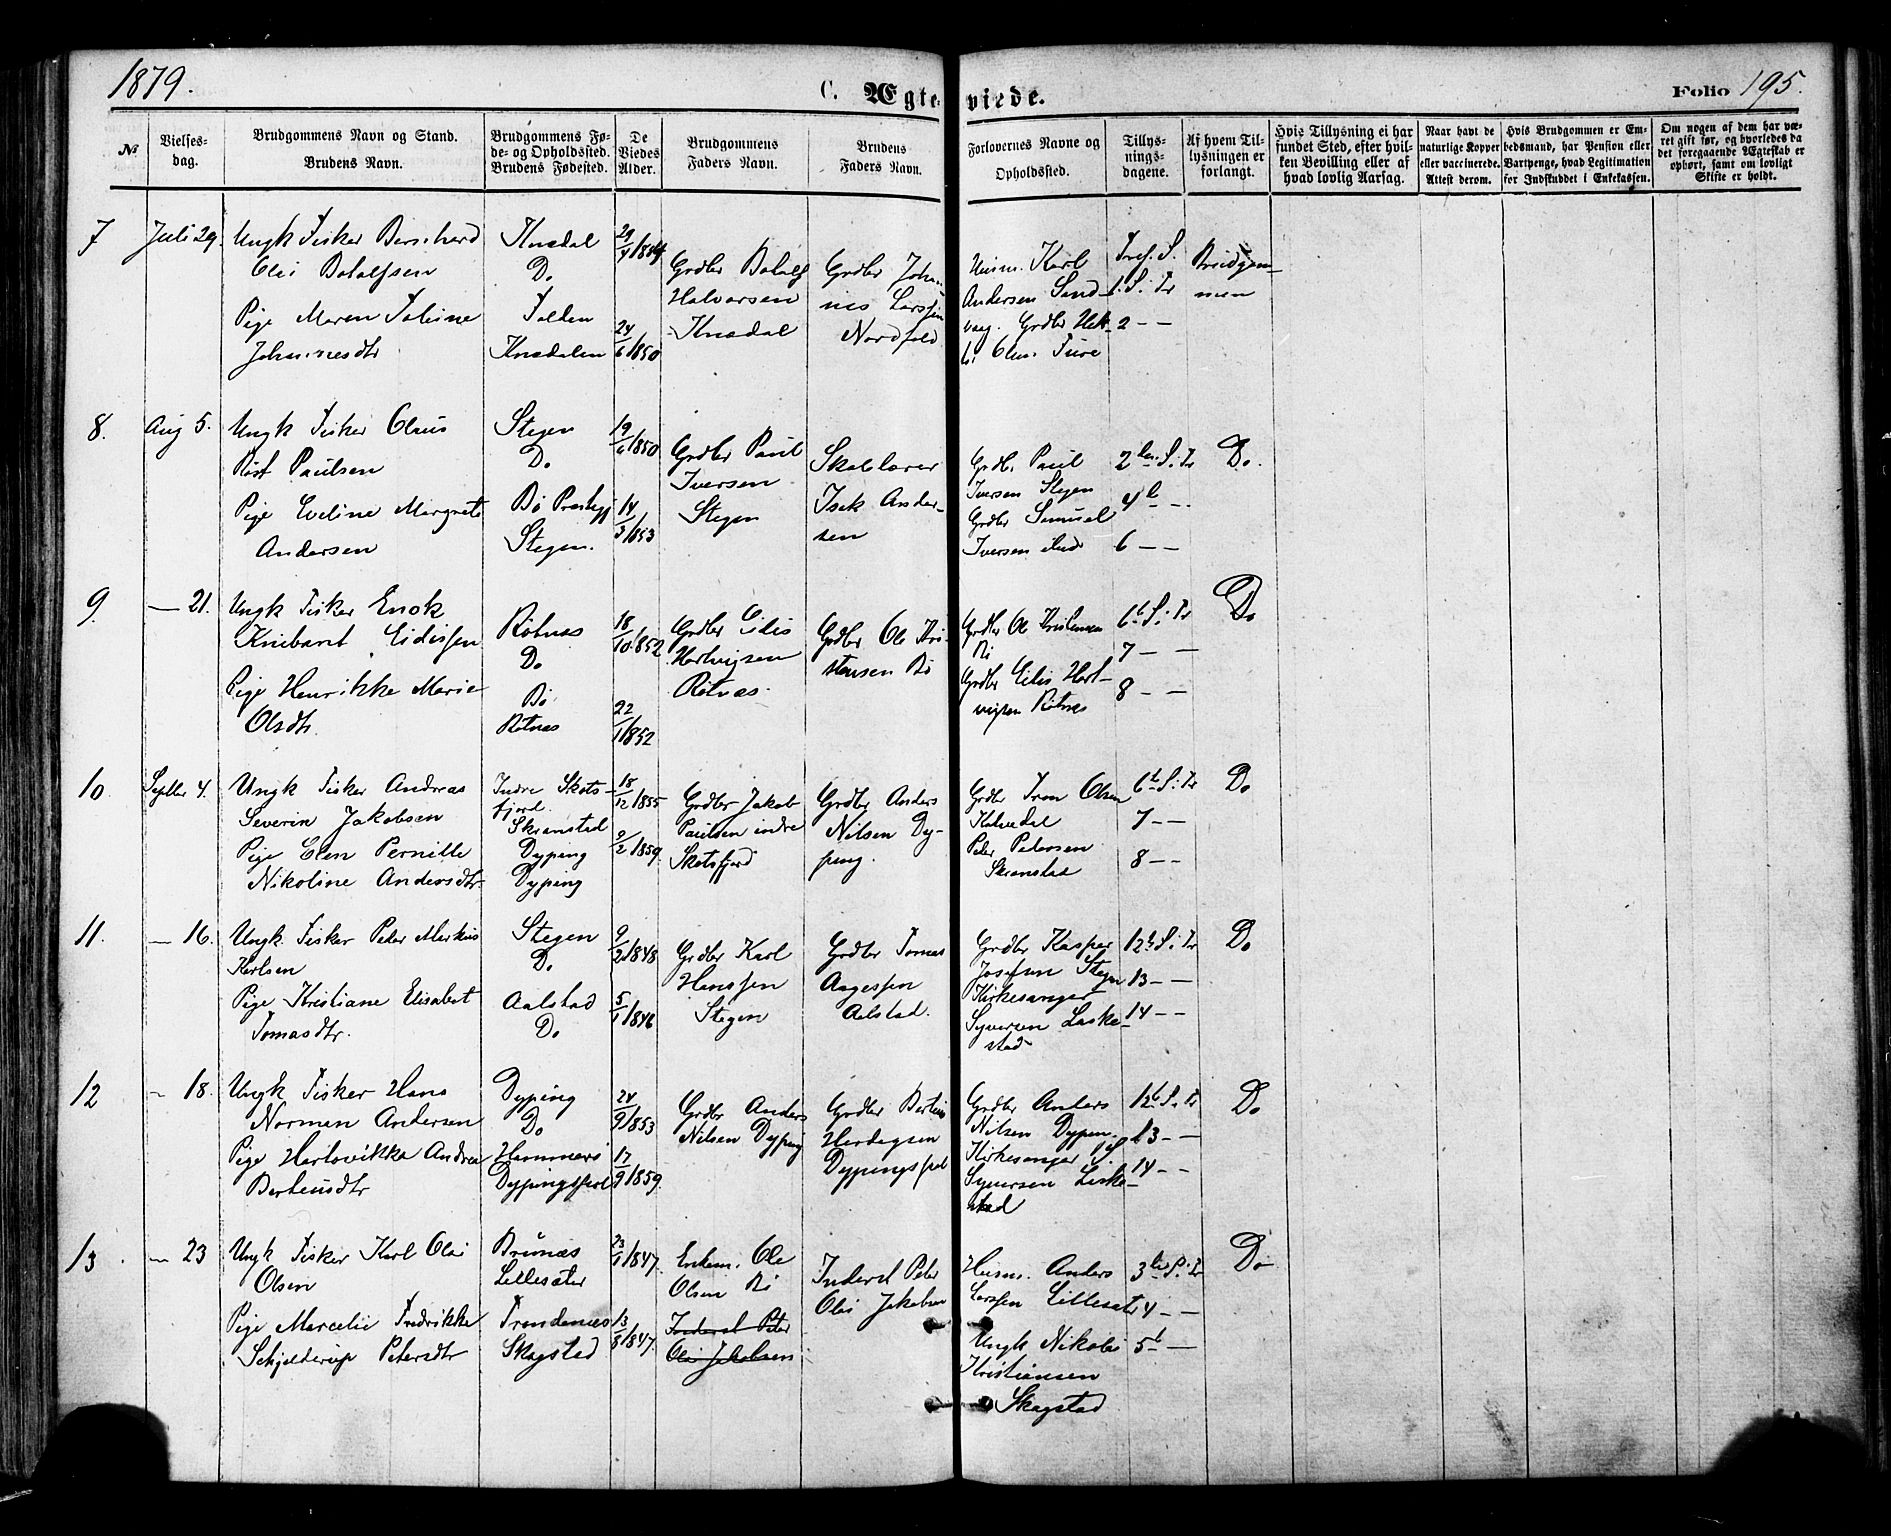 1879.
C. Ægteviede.
Folio 195.
№
Vielses-
dag.
Brudgommens Navn og Stand.
Brudens Navn.
Brudgommens Fø-
de- og Opholdssted.
Brudens Fødested.
De
Viedes
Alder.
Brudgommens
Faders Navn.
Brudens
Faders Navn.
Forlovernes Navne og
Opholdssted.
Tillys-
nings-
dagene.
Af hvem Til-
lysningen er
forlangt.
Hvis Tillysning ei har
fundet Sted, efter hvil-
ken Bevilling eller af
hvad lovlig Aarsag.
Naar havt de
naturlige Kopper
eller vaccinerede.
Attest derom.
Hvis Brudgommen er Em-
bedsmand, har Pension eller
Vartpenge, hvad Legitimation
for Indskuddet i Enkekassen.
Om nogen af dem har væ-
ret gift før, og hvorledes da
det foregaaende Ægteskab er
ophørt, samt om lovligt
Skifte er holdt.
7
Juli 29.
Ungk Fisker Bernhard
Olai Botolfsen
Pige Maren
Johannesdtr
Knædal
Do
Folden
Knædalen
29/4 1844
24/6 1850
Grdbr Botolf
Halvorsen
Knædal
Grdbr Johan-
nes Larssen
Nordfold
Husm. Karl
Andersen Sand-
vaag. Grdbr
Olsen
Tref. S.
1. S. i Tr
2 – –
Brudgom-
men
8.
Aug 5.
Ungk Fisker Olaus
Røst Paulsen
Pige Eveline Margrete
Andersen
Stegen
Do
Bø Præstegj
Stegen.
19/6 1850
14/3 1853
Grdbr Paul
Iversen
Stegen
Skolelærer
Isak Ander-
sen
Grdb. Paul
Iversen Stegen
Grdbr Samuel
Iversen ibid
2den S. i Tr
4de – –
6 – –
Do.
9.
— 21.
Ungk Fisker Enok
Eidissen
Pige Henrikke Marie
Olsdtr.
Røtnæs
Do
Bø
Røtnæs
18/10 1852
22/1 1852
Grdbr Eidis
Hartvigsen
Røtnæs.
Grdbr Ole Kri-
stensen Bø
Grdbr Ole Kristensen
Bø
Grdbr Eidis Hart-
vigsen Røtnæs
6te S. i Tr
7 – –
8 – –
Do
10
Septbr 4.
Ungk Fisker Andreas
Severin Jakobsen
Pige Elen Pernille
Nikoline Andersdtr
Indre Skots-
fjord.
Skranstad
Dyping
Dyping
18/12 1855
9/2 1859
Grdbr Jakob
Paulsen indre
Skotsfjord
Grdbr Anders
Nilsen Dy-
ping.
Grdbr Tron Olsen
Kalvedal
Peter Petersen
Skranstad
6te S. i Tr
7 – –
8 – –
Do
11.
— 16.
Ungk. Fisker Peter Markus
Karlsen
Pige Kristiane Elisabet
Tomasdtr.
Stegen
Do
Aalstad
Do
9/2 1848
5/1 1846
Grdbr Karl
Hanssen
Stegen
Grdbr Tomas
Aagessen
Aalstad.
Grdbr Kasper
Josefsen Stegen
Kirkesanger
Syversen Laske-
stad
12te S. i Tr
13 – –
14 – –
Do
12
– 18.
Ungk Fisker Hans
Norman Andersen
Pige Hartvikka Andrea
Berteusdtr
Dyping
Do
Hammerø
Dypingspol
24/9 1853
17/9 1859.
Grdbr Anders
Nilsen Dyping
Grdbr Berteus
Hardagsen
Dypingspol
Grdbr Anders
Nilsen Dypin.
Kirkesanger
Syversen Laske-
stad
12te S. i Tr
13 – –
14 – –
Do
13.
– 23
Ungk Fisker Karl Olai
Olsen
Pige Marcelie Fredrikke
Schjelderup Petersdtr
Brunæs
Lillesæter
Trondenæs
Skagstad
23/1 1847.
13/8 1847.
Enkem. Ole
Olsen Bø
Inderst Peter
Olai Jakobsen
Inderst Peter
Olai Jakobsen
Husm. Anders
Larssen Lillesæter
Ungk Nikolai
Kristiansen
Skagstad
3die S. i Tr
4 – –
5te –
Do